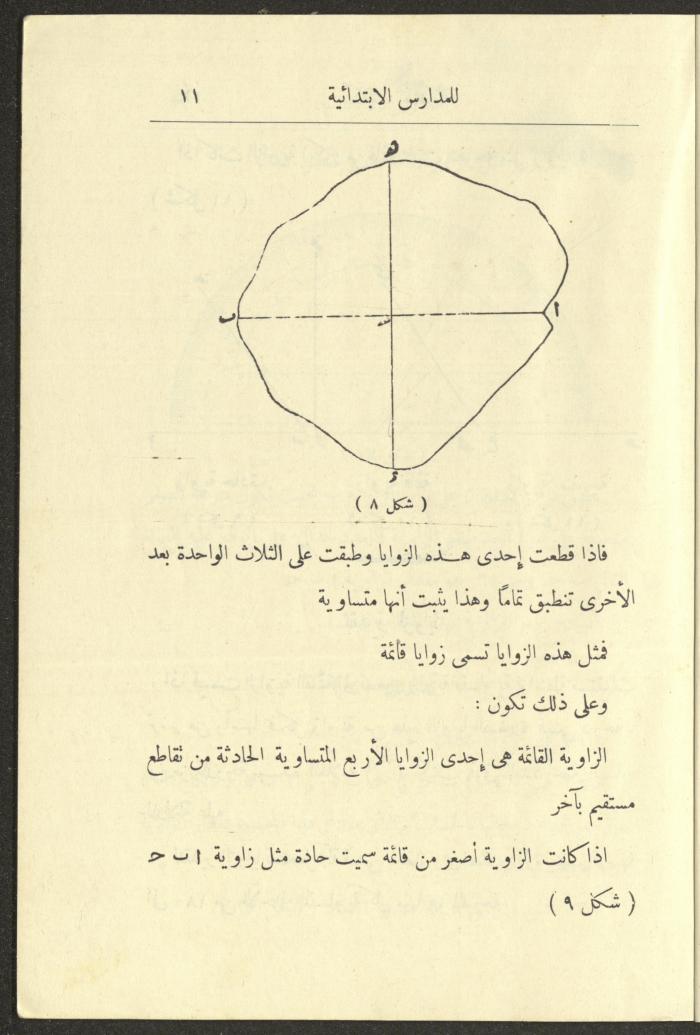 للمدارس الابتدائية ١١
ه
ب
ا
د
( شكل ٨ )
فاذا قطعت إحدى هـذه الزوايا وطبقت على الثلاث الواحدة بعد
الأخرى تنطبق تمامًا وهذا يثبت أنها متساوية
فمثل هذه الزوايا تسمى زوايا قائمة
وعلى ذلك تكون :
الزاوية القائمة هى إحدى الزوايا الأربع المتساوية الحادثة من تقاطع
مستقيم بآخر
اذا كانت الزاوية أصغر من قائمة سميت حادة مثل زاوية ا ب ح
( شكل ٩ )